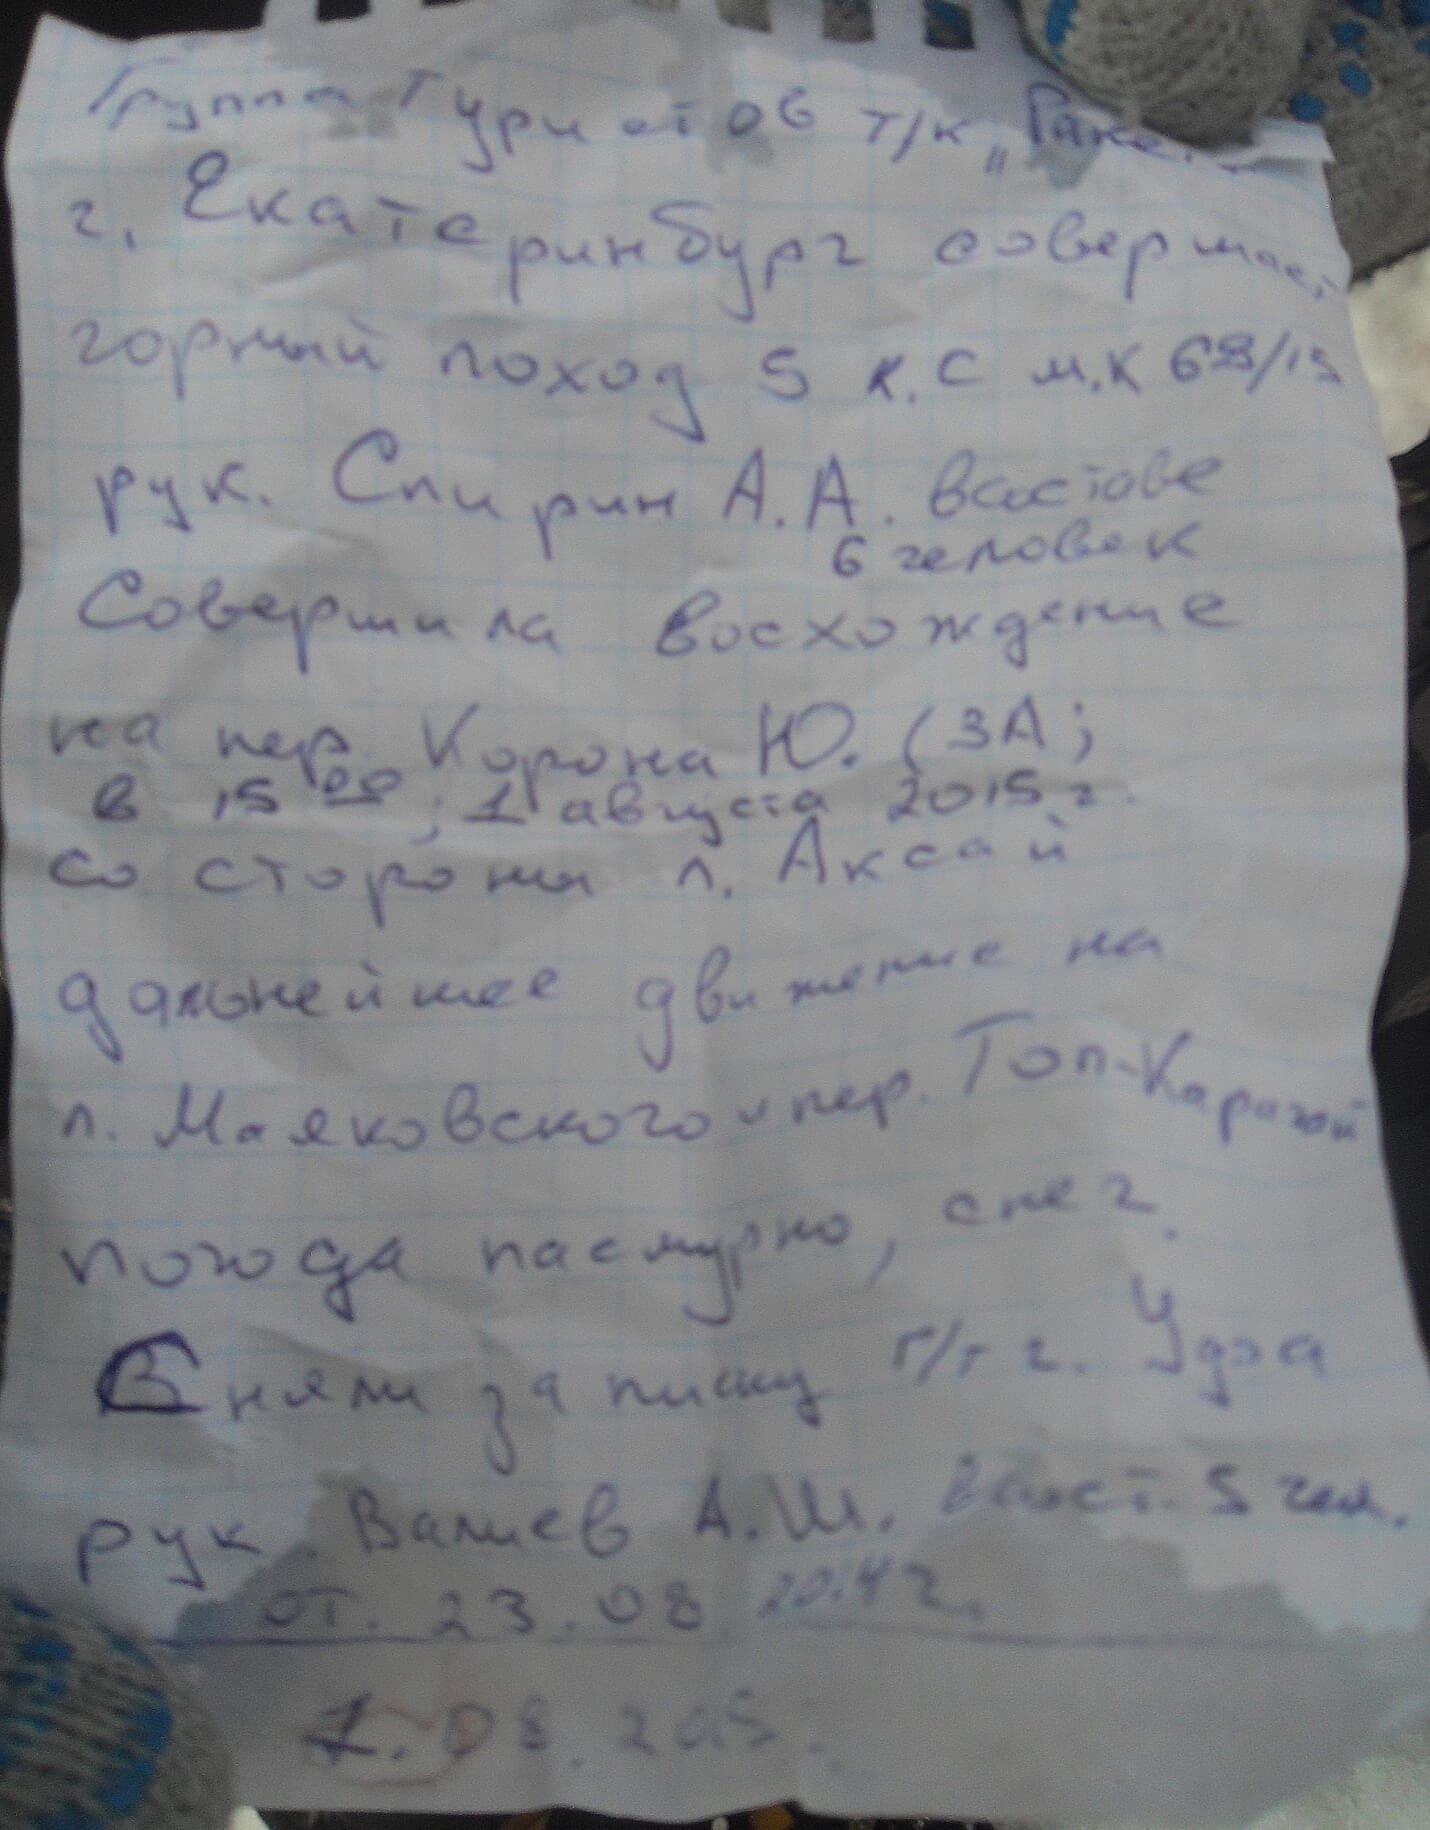 Группа Туристов т/к „Ракета
г. Екатеринбург совершает
горный поход 5 к.с м.к 69/15
рук. Спирин А.А. в составе
6 человек
Совершила восхождение
на пер. Корона Ю. (3А;
в 15 00; 1 августа 2015 г.
со стороны л. Аксай
дальнейшее движение на
л. Маяковского и пер. Топ-Карагай
погода пасмурно, снег.
Сняли записку г/т г. Удэа
рук. Валиев А.Ш. в сост. 5 чел.
от. 23.08 2014 г.
1.08.2015.